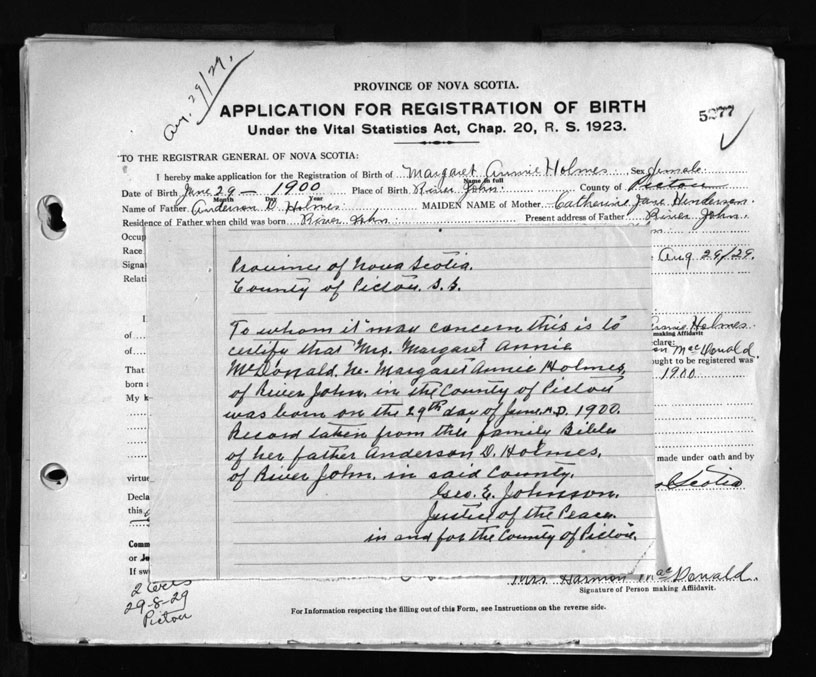 Aug. 29/29.
PROVINCE OF NOVA SCOTIA.
5277
APPLICATION FOR REGISTRATION OF BIRTH
Under the Vital Statistics Act, Chap. 20, R. S. 1923.
TO THE REGISTRAR GENERAL OF NOVA SCOTIA:
I hereby make application for the Registration of Birth of Margaret Annie Holmes Sex female
Name in full
Date of Birth June 29 — 1900 Place of Birth River John. County of Pictou
Month Day Year
Name of Father Anderson D. Holmes. MAIDEN NAME of Mother Catherine Jane Henderson.
Residence of Father when child was born River John. Present address of Father River John.
Occup
Race
Signa Aug 29/29.
Relati
Province of Nova Scotia.
County of Pictou. S.S.
To whom it may concern this is to
certify that Mrs. Margaret Annie
McDonald. Ne. Margaret Annie Holmes,
of River John. in the County of Pictou
was born on the 29th day of June. A.D. 1900.
Record taken from the family Bible
of her father Anderson D. Holmes.
of River John. in said County.
Geo. E. Johnson.
Justice of the Peace.
in and for the County of Pictou.
I
of Annie Holmes.
making Affidavit
of declare:
on MacDonald.
That ought to be registered was
born a 1900
My k
made under oath and by
virtue Scotia
Decla
this
Comm
or Ju
If sw
Mrs Harmon MacDonald.
Signature of Person making Affidavit.
2 certs
29-8-29
Pictou
For Information respecting the filling out of this Form, see Instructions on the reverse side.